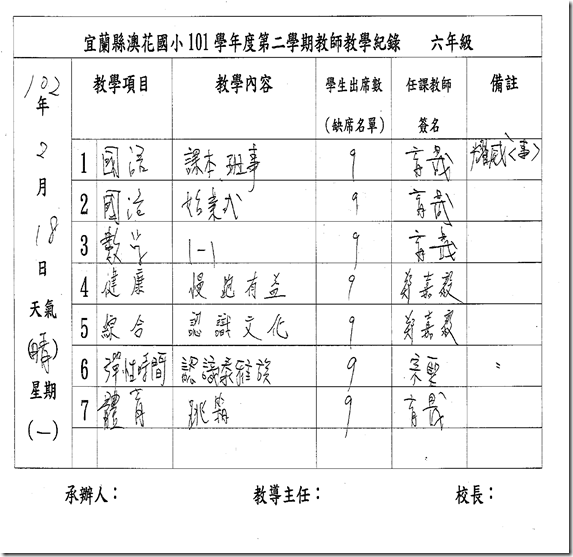 宜蘭縣澳花國小101學年度第二學期教師教學紀錄 六年級
102年2月18日天氣(晴)星期(一)
教學項目 教學內容 學生出席數(缺席名單) 任課教師簽名 備註
1 國語 課本,班事 9 育哉 耀威<事>
2 國語 始業式 9 育哉
3 數學 1-1 9 育哉
4 健康 慢跑有益 9 鄭嘉毅
5 綜合 認識文化 9 鄭嘉毅
6 彈性時間 認識泰雅族 9 〃
7 體育 跳箱 9 育哉
承辦人: 教導主任: 校長: